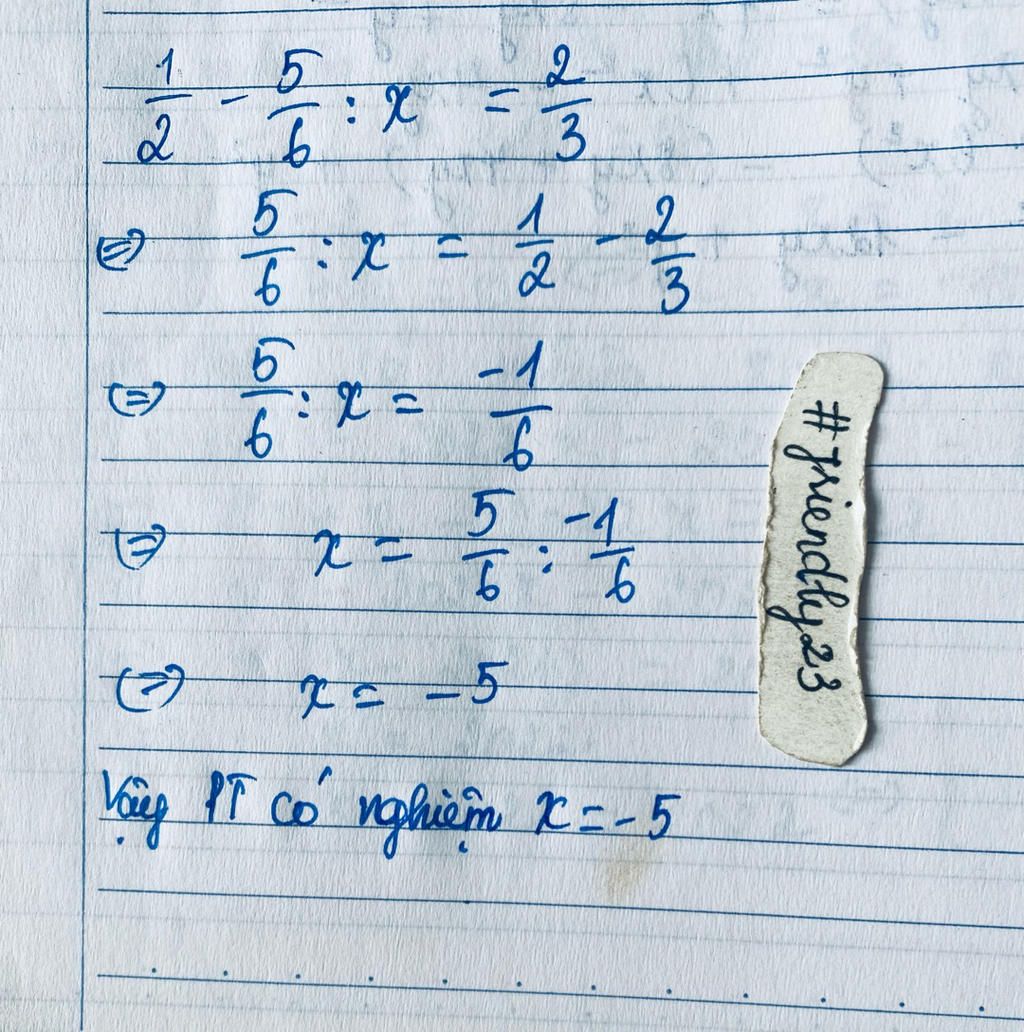 1/2 - 5/6 : x = 2/3
⇔ 5/6 : x = 1/2 - 2/3
⇔ 5/6 : x = -1/6
⇔ x = 5/6 : -1/6
⇔ x = -5
Vậy PT có nghiệm x = -5
#friendly23